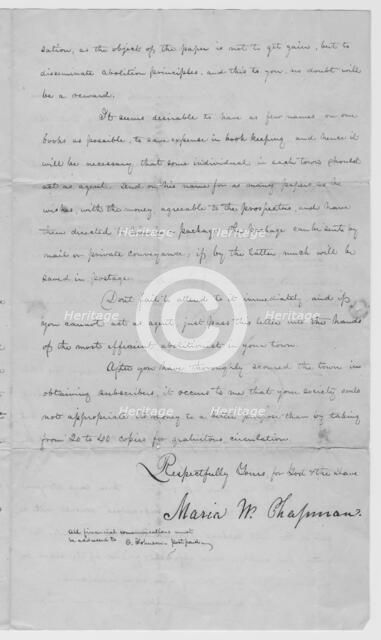 sation, as the object of the paper is not to get gain, but to
disseminate abolition principles, and this to you, no doubt will
be a reward.
It seems desirable to have as few names on our
books as possible, to save expense in book keeping, and hence it
will be necessary that some individual in each town should
act as agent, send on his name for as many papers as he
wishes, with the money, agreeable to the prospectus, and have
them directed to him in a package. The package can be sent by
mail or private conveyance; if by the latter much will be
saved in postage.
Dont fail to attend to it immediately and if
you cannot act as agent, just pass this letter into the hands
of the most efficient abolitionist in your town.
After you have thoroughly scoured the town in
obtaining subscribers, it occurs to me that your society could
not appropriate its money to a better purpose than by taking
from 20 to 40 copies for gratuitous circulation.
Respectfully Yours for God & the Slave
Maria W. Chapman.
All financial communications must
be addressed to post paid
Heritage
Heritage
Heritage
Heritage
Heritage
Heritage
Heritage